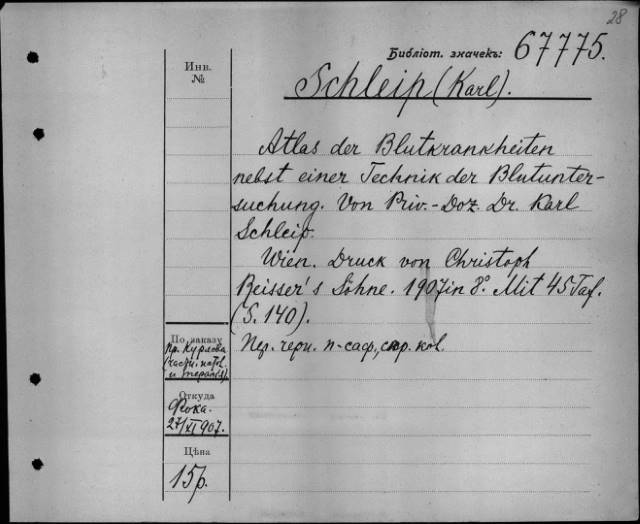 28
Библіот. значекъ: 67775.
Инв.
№
Schleip (Karl).
Atlas der Blutkrankheiten
nebst einer Technik der Blutunter-
suchung. Von Priv.-Doz. Dr. Karl
Schleip.
Wien. Druck von Christoph
Reisser's Söhne. 1907 in 8°. Mit 45 Taf.
(S. 140).
По заказу
пр. Курлова
(частн. патол.
и терапія)
Пер. черн. п-саф., скр. кол.
Откуда
Фока.
27/XI 907.
Цѣна
15 р.